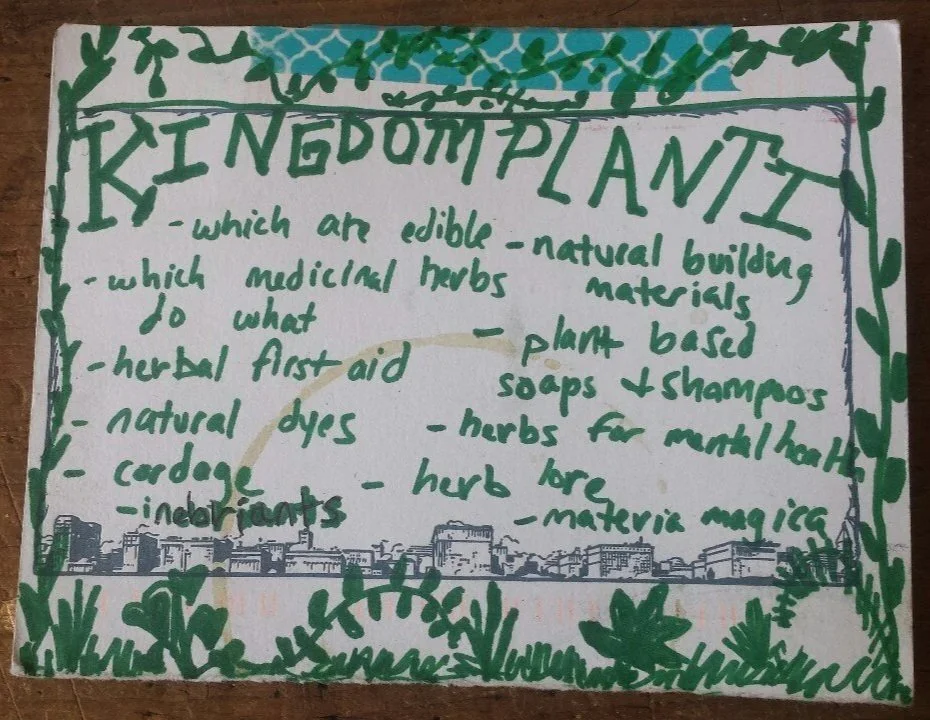 KINGDOM PLANTI
- which are edible
- which medicinal herbs
do what
- herbal first aid
- natural dyes
- cordage
- inebriants
- natural building
materials
- plant based
soaps + shampoos
- herbs for mental health
- herb lore
- materia magica